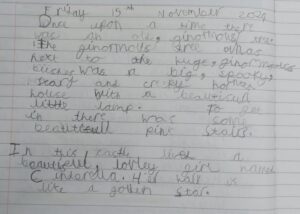 Friday 15th November 2024
Once upon a time there
was an old, ginormous tree.
The ginormous tree was
next to the huge, ginormous
was a big, spooky,
scary and creepy
house with a beautiful
little lamp. To get
in there was some
beautiful pink stairs.
In this castle lived a
beautiful, lovley girl named
Cinderella. walk is
like a golden star.